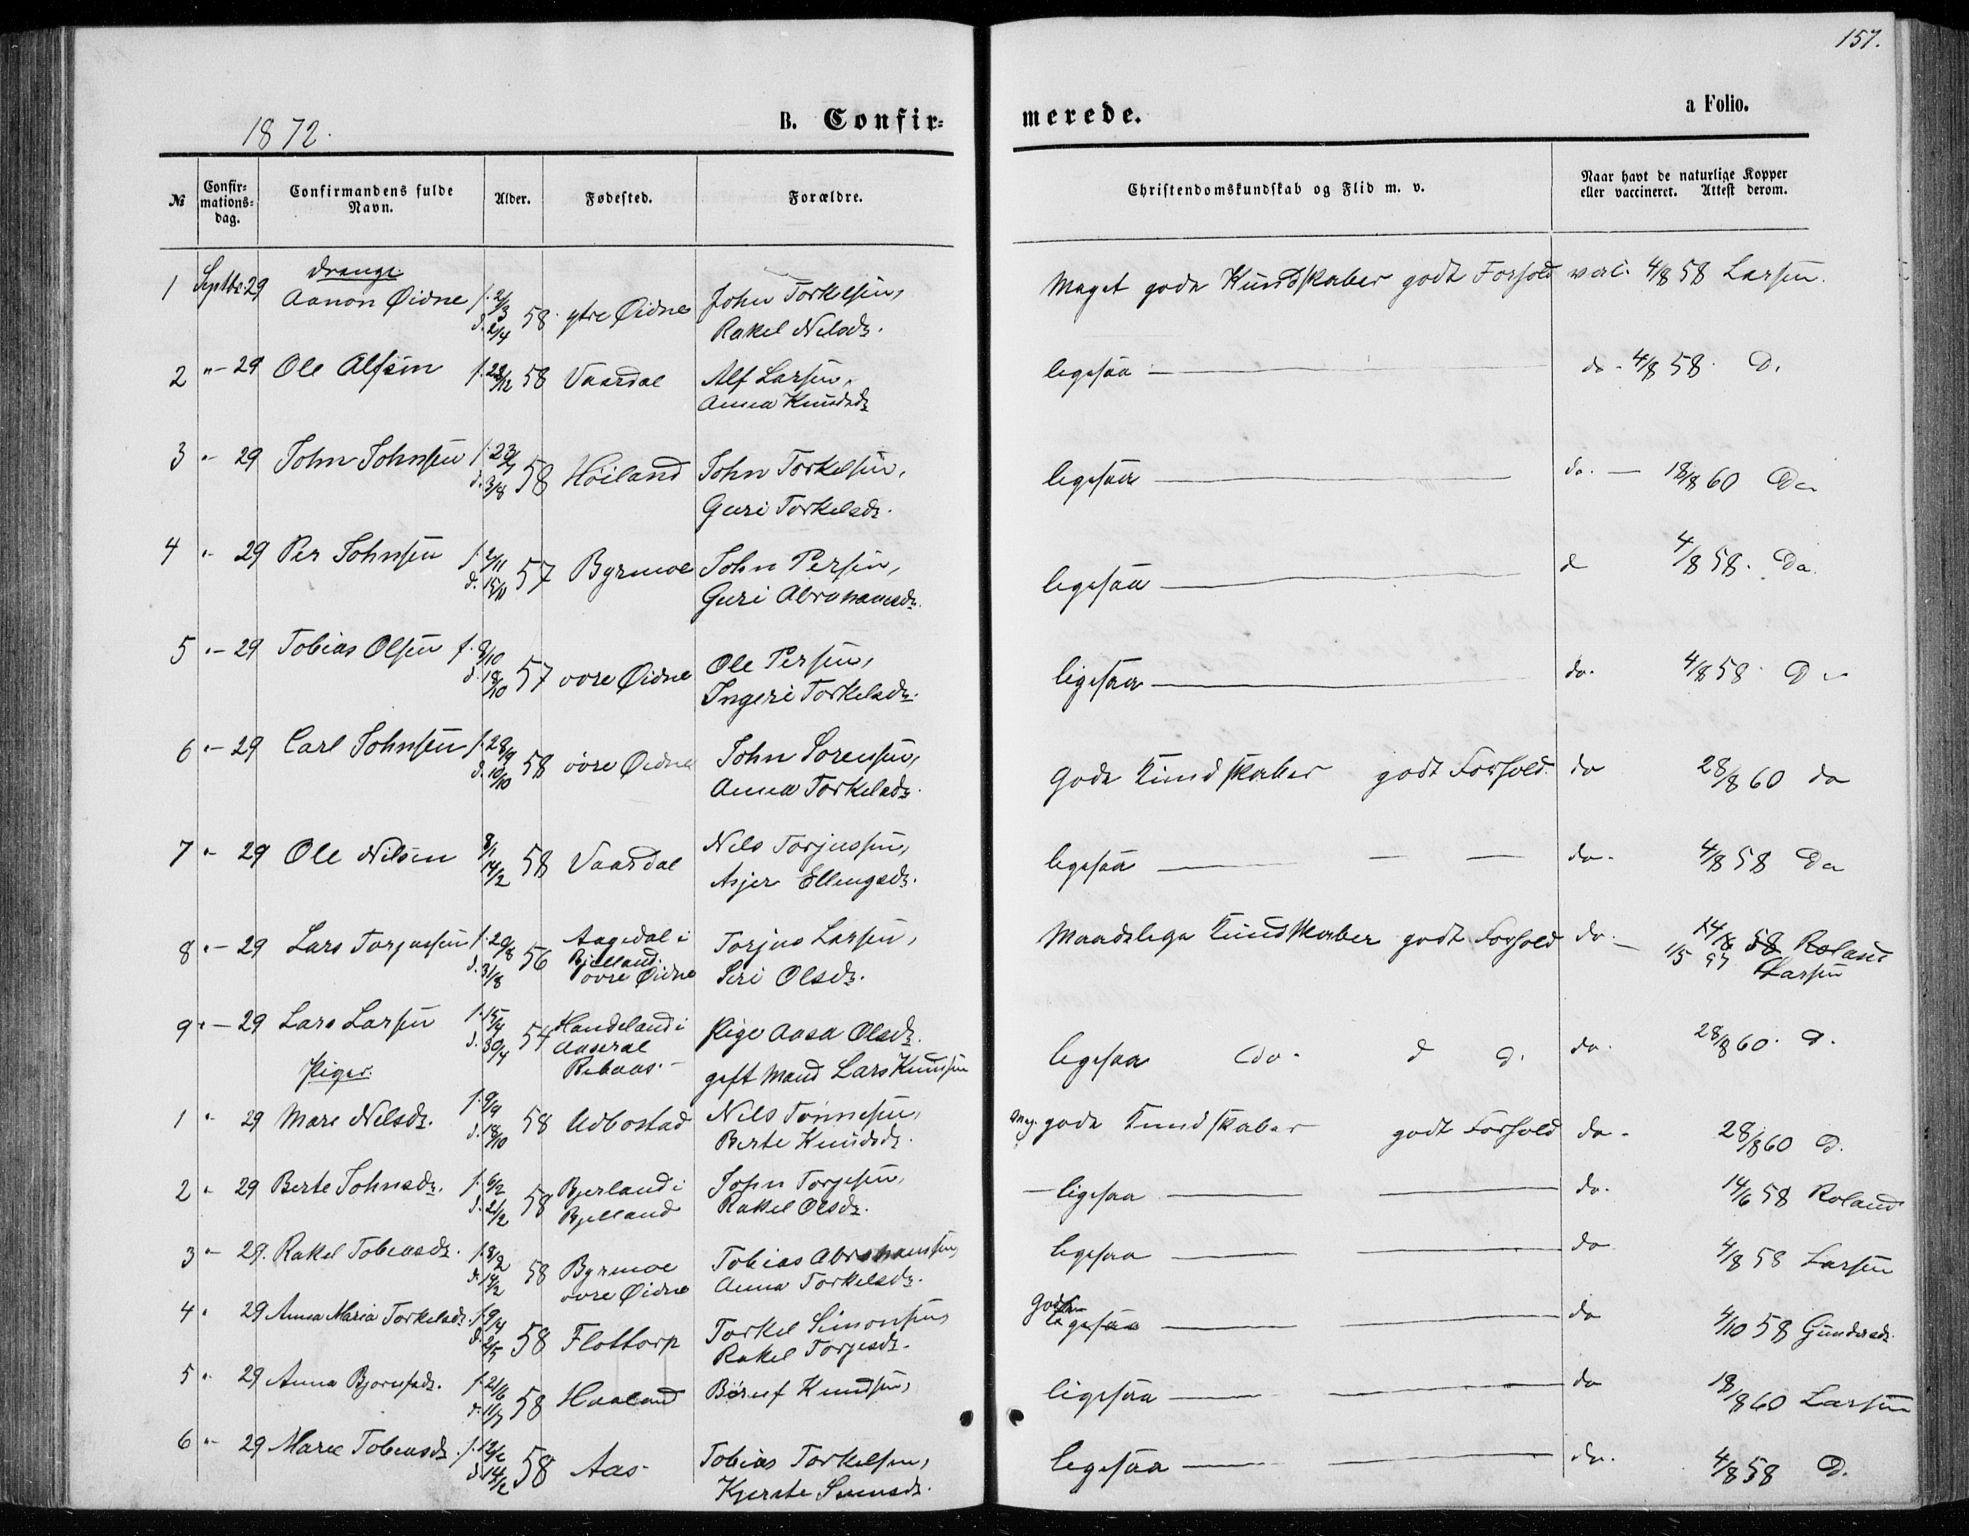 157.
1872.
B. Confir=
merede.
a Folio.
№
Confir=
mations=
dag.
Confirmandens fulde
Navn.
Alder.
Fødested.
Forældre.
Christendomskundskab og Flid m. v.
Naar havt de naturlige Kopper
eller vaccineret. Attest derom.
Drenge
1 Septbr. 29 Aanon Øidne f. 2/3 d. 2/4 58 ytre Øidne John Torkelsen, Rakel Nilsdr. Meget gode Kundskaber godt Forhold vacc. 4/8 58 Larsen.
2 "- 29 Ole Alfsen f. 28/12 58 Vaardal Alf Larsen, Anna Knudsdr ligesaa do. 4/8 58. D.
3 "- 29 John Johnsen f. 23/7 d. 3/8 58 Höiland John Torkelsen, Guri Torkelsdr. ligesaa do. 18/8 60 Do
4 "- 29 Per Johnsen f. 2/11 d. 15/11 57 Byrmoe John Persen, Guri Abrahamsdr. ligesaa d 4/8 58. Do.
5 "- 29 Tobias Olsen f. 8/10 d. 18/10 57 övre Øidne Ole Persen, Ingeri Torkelsdr. ligesaa do. 4/8 58. D
6 "- 29 Carl Johnsen f. 28/9 d. 10/10 58 övre Øidne John Sorensen, Anna Torkelsdr. Gode Kundskaber godt Forhold. do 28/8 60 do
7 "- 29 Ole Nilsen 8/1 14/2 58 Vaardal Nils Torjussen, Asjer Ellingsdr. ligesaa do. 4/8 58 Do
8 "- 29 Lars Torjussen f. 20/8 d. 31/8 56 Aagedal i Bjelland. övre Øidne Torjus Larsen, Siri Olsdr. Maadelige Kundskaber godt Forhold do. 14/6 58 Roland 1/5 57 Larsen
9 "- 29 Lars Larsen f. 15/4 d. 30/4 54 Handeland i Aaseral Rebaas. Pige Aasa Olsdr. gift Mand Lars Knudsen ligesaa do. d d. do. 28/8 60. D.
Piger.
1 "- 29 Mare Nilsdr. f. 9/9 d. 18/10 58 Udbostad Nils Tönnesen, Berte Knudsdr. Meg. gode Kundskaber godt Forhold do. 28/8 60 D.
2 "- 29 Berte Johnsdr. f. 6/2 d. 21/2 58 Bjerland i Bjelland John Torjesen, Rakel Olsdr. ligesaa do. 14/6 58 Roland
3 "- 29. Rakel Tobiasdr. f. 3/2 d. 14/2 58 Byrmoe övre Øidne Tobias Abrahamsen, Anna Torkelsdr. ligesaa do 4/8 58 Larsen
4 "- 29 Anna Maria Torkelsdr. f. 9/4 d. 2/5 58 Flottorp Torkel Simonsen, Rakel Torjesdr. gode ligesaa do 4/10 58 Gundersdr.
5 "- 29 Anna Bjornsdr. f. 21/6 d. 11/7 58 Haaland Börnf Knudsen, ligesaa do 18/8 60 Larsen
6 "- 29 Maree Tobiasdr. f. 12/2 d. 14/2 58 Aas. Tobias Torkelsen, Kjerste ligesaa do. 4/8 58 D.